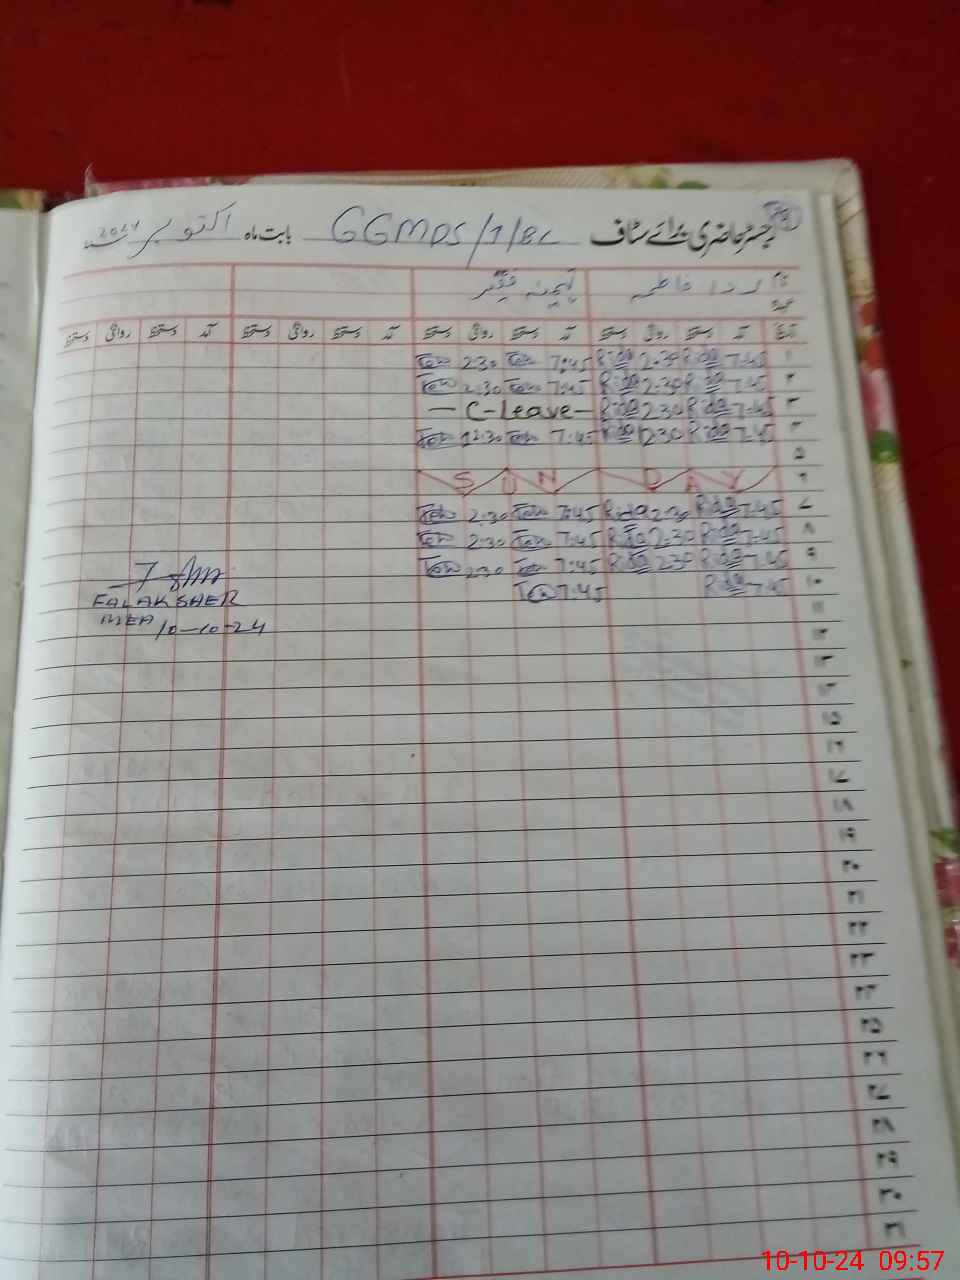 رجسٹر حاضری برائے سٹاف GGMPS/1/8L بابت ماہ اکتوبر 2024
نام ردا فاطمہ
عہدہ
تاریخ آمد دستخط روانگی دستخط آمد دستخط روانگی دستخط آمد دستخط روانگی دستخط آمد دستخط روانگی دستخط
۱ 7:45 Rida 2:30 Rida 7:45 2:30
۲ 7:45 Rida 2:30 Rida 7:45 2:30
۳ 7:45 Rida 2:30 Rida — C-Leave —
۴ 7:45 Rida 12:30 Rida 7:45 12:30
۵
۶ SUNDAY
۷ 7:45 Rida 2:30 Rida 7:45 2:30
۸ 7:45 Rida 2:30 Rida 7:45 2:30
۹ 7:45 Rida 2:30 Rida 7:45 2:30
۱۰ 7:45 Rida 7:45
FALAK SHER
MEA 10-10-24
۱۱
۱۲
۱۳
۱۴
۱۵
۱۶
۱۷
۱۸
۱۹
۲۰
۲۱
۲۲
۲۳
۲۴
۲۵
۲۶
۲۷
۲۸
۲۹
۳۰
۳۱
10-10-24 09:57